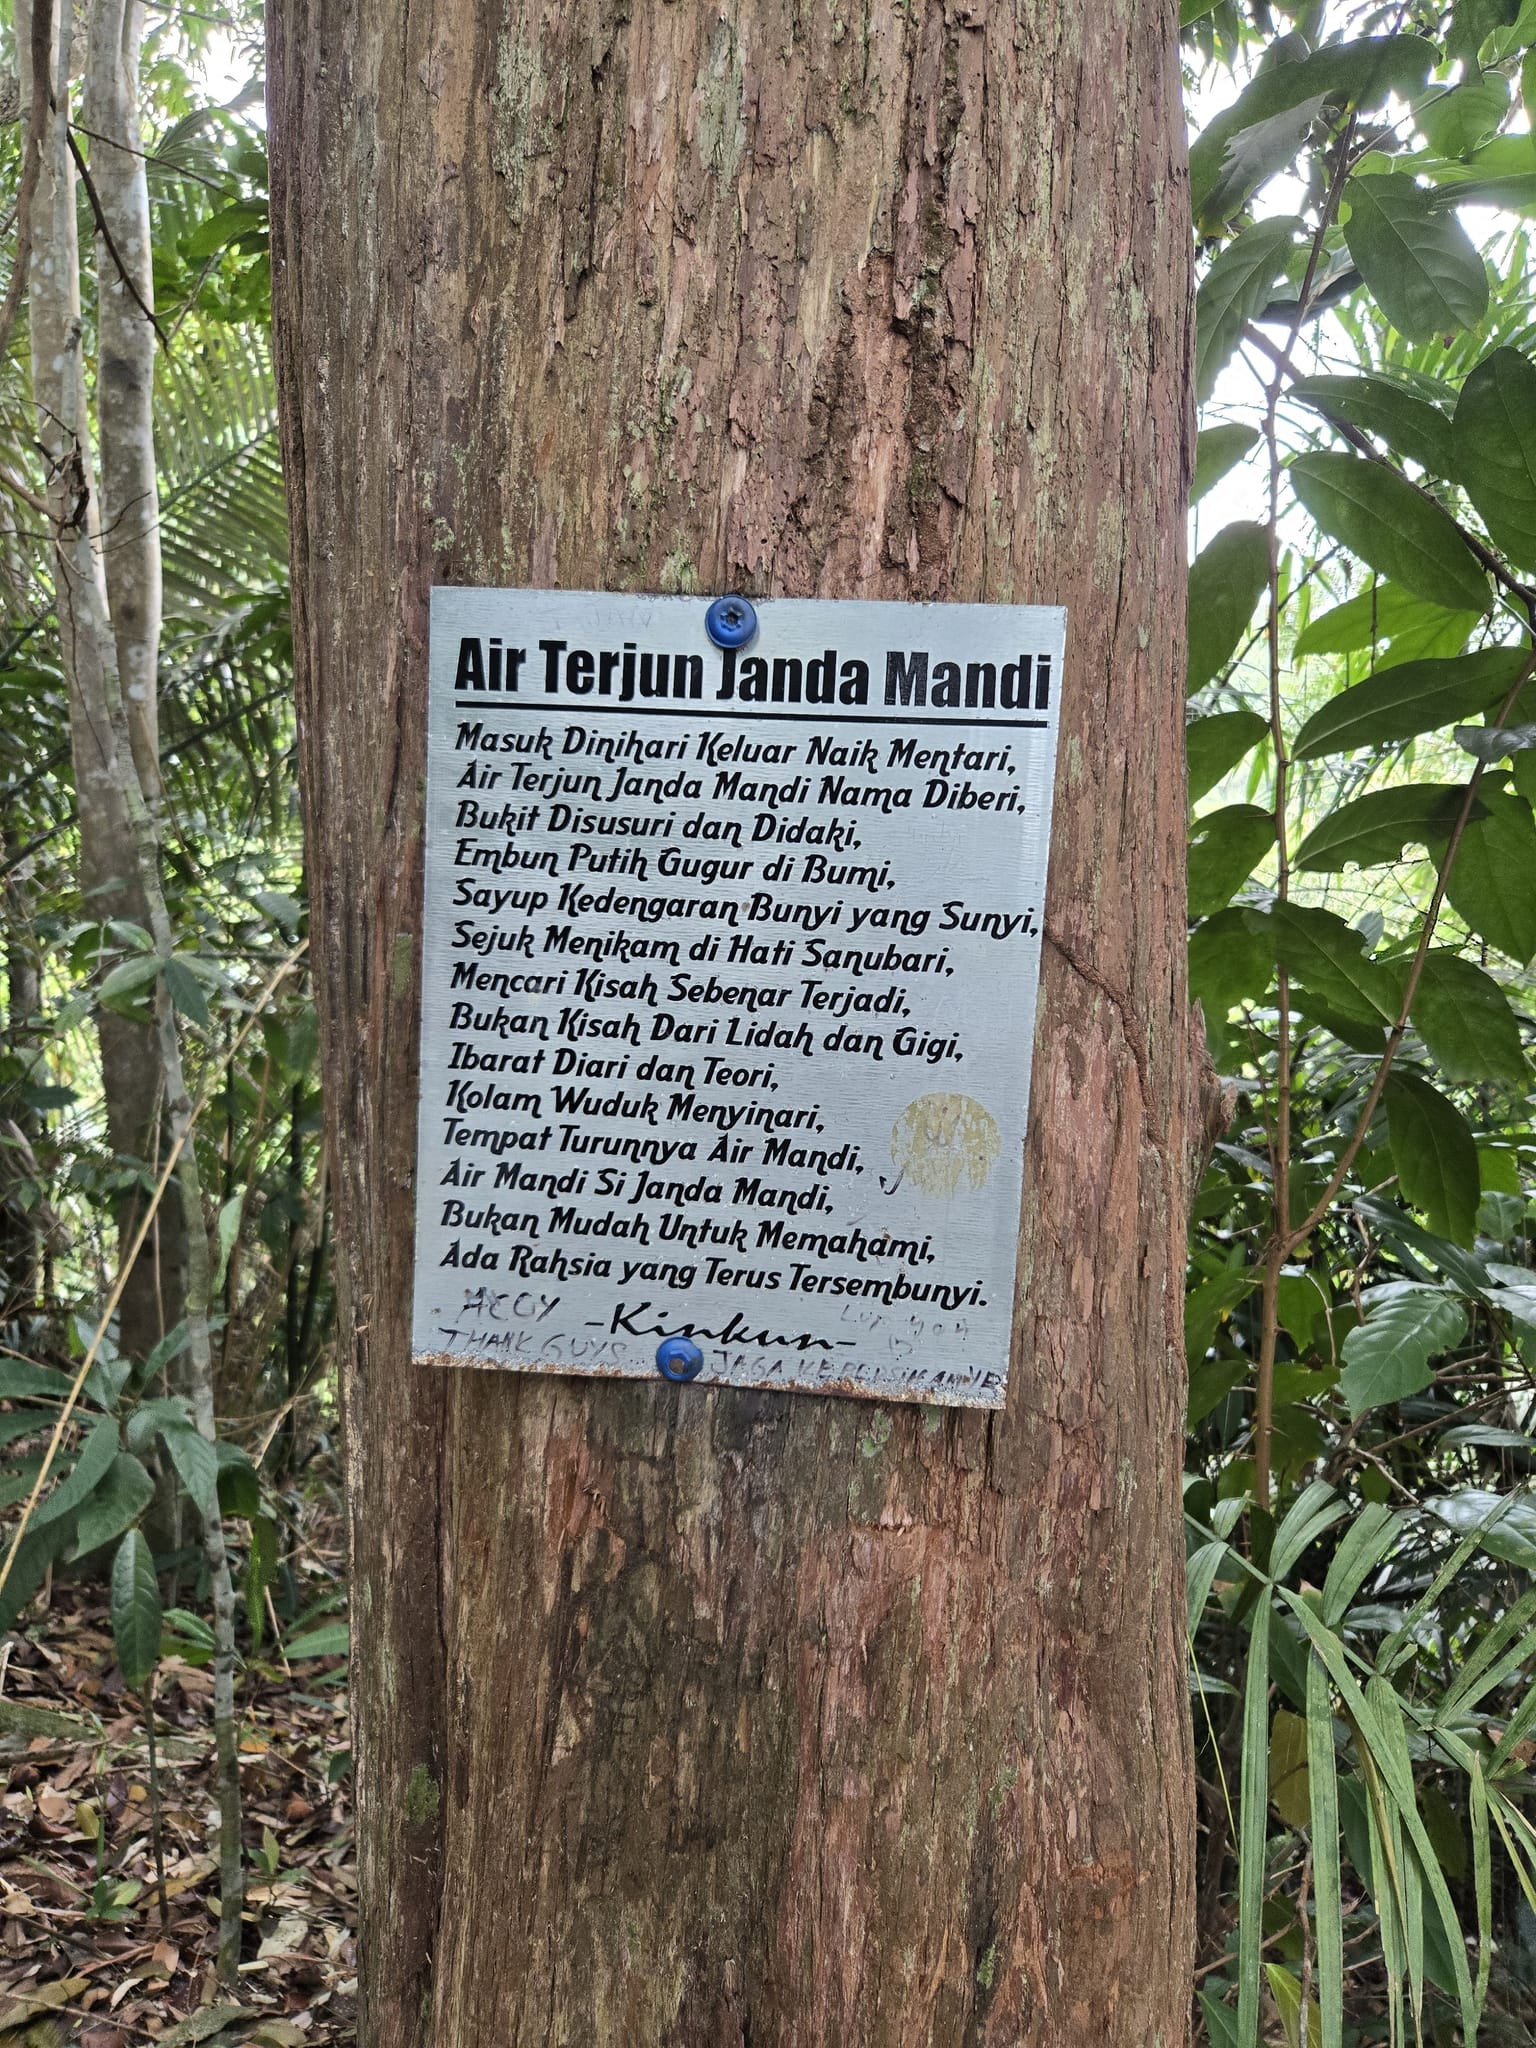 Air Terjun Janda Mandi
Masuk Dinihari Keluar Naik Mentari,
Air Terjun Janda Mandi Nama Diberi,
Bukit Disusuri dan Didaki,
Embun Putih Gugur di Bumi,
Sayup Kedengaran Bunyi yang Sunyi,
Sejuk Menikam di Hati Sanubari,
Mencari Kisah Sebenar Terjadi,
Bukan Kisah Dari Lidah dan Gigi,
Ibarat Diari dan Teori,
Kolam Wuduk Menyinari,
Tempat Turunnya Air Mandi,
Air Mandi Si Janda Mandi,
Bukan Mudah Untuk Memahami,
Ada Rahsia yang Terus Tersembunyi.
-Kinkun-
ACOY
THANK GUYS
JAGA